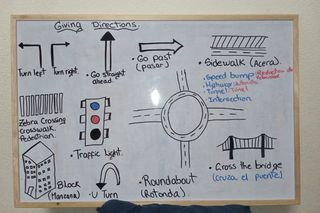 Giving Directions.
Turn left
Turn right.
• Go straight
ahead.
• Go past
(pasar)
• Sidewalk (Acera).
• Speed bump
• Highway
• Tunnel Túnel
Intersection
Zebra Crossing
Crosswalk.
Pedestrian.
• Traffic Light.
Block
(Manzana)
• U Turn
• Roundabout
(Rotonda).
• Cross the bridge
(Cruza el puente)